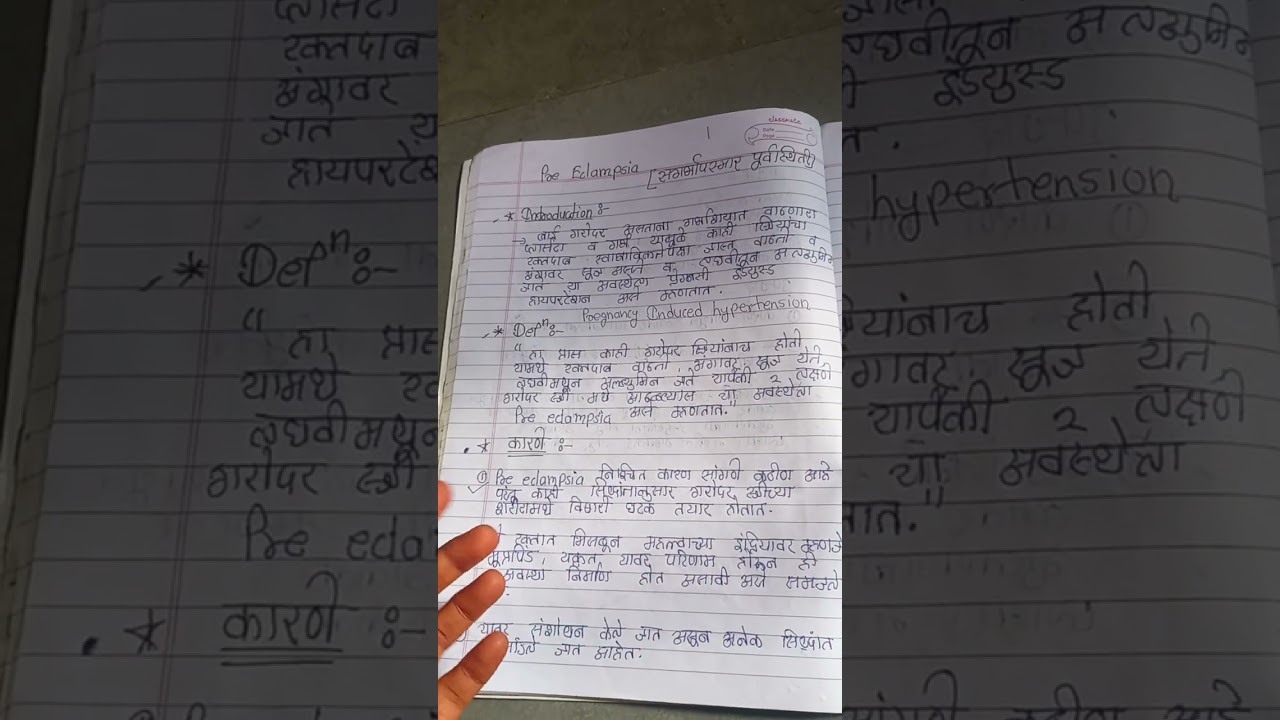 classmate
Date
Page
Pre Eclampsia [सगर्भापस्मार पूर्वस्थिती]
* Introduction :-
→ बाई गरोदर असताना गर्भाशयात वाढणारा
प्लासेंटा व गर्भ यामुळे काही स्त्रियांचा
रक्तदाब स्वाभाविकतेपेक्षा जास्त वाढतो व
अंगावर सूज असते व लघवीतून अल्ब्युमिन
जाते या अवस्थेला प्रेग्नन्सी इंड्युस्ड
हायपरटेंशन असे म्हणतात.
Pregnancy Induced hypertension
* Defⁿ :-
"हा त्रास काही गरोदर स्त्रियांनाच होतो
यामधे रक्तदाब वाढतो, अंगावर सूज येते
लघवीमधून अल्ब्युमिन जाते यापैकी २ लक्षणे
गरोदर स्त्री मधे आढळल्यास या अवस्थेला
Pre eclampsia असे म्हणतात."
* कारणे :-
① Pre eclampsia निश्चित कारण सांगणे कठीण आहे
परंतु काही सिद्धांतानुसार गरोदर स्त्रीच्या
शरीरामधे विषारी घटक तयार होतात.
रक्तात मिसळून महत्वाच्या इंद्रियावर म्हणजे
मूत्रपिंड, यकृत यावर परिणाम होऊन ही
अवस्था निर्माण होत असावी असे समजले
यावर संशोधन केले जात असून अनेक सिद्धांत
मांडले जात आहेत.